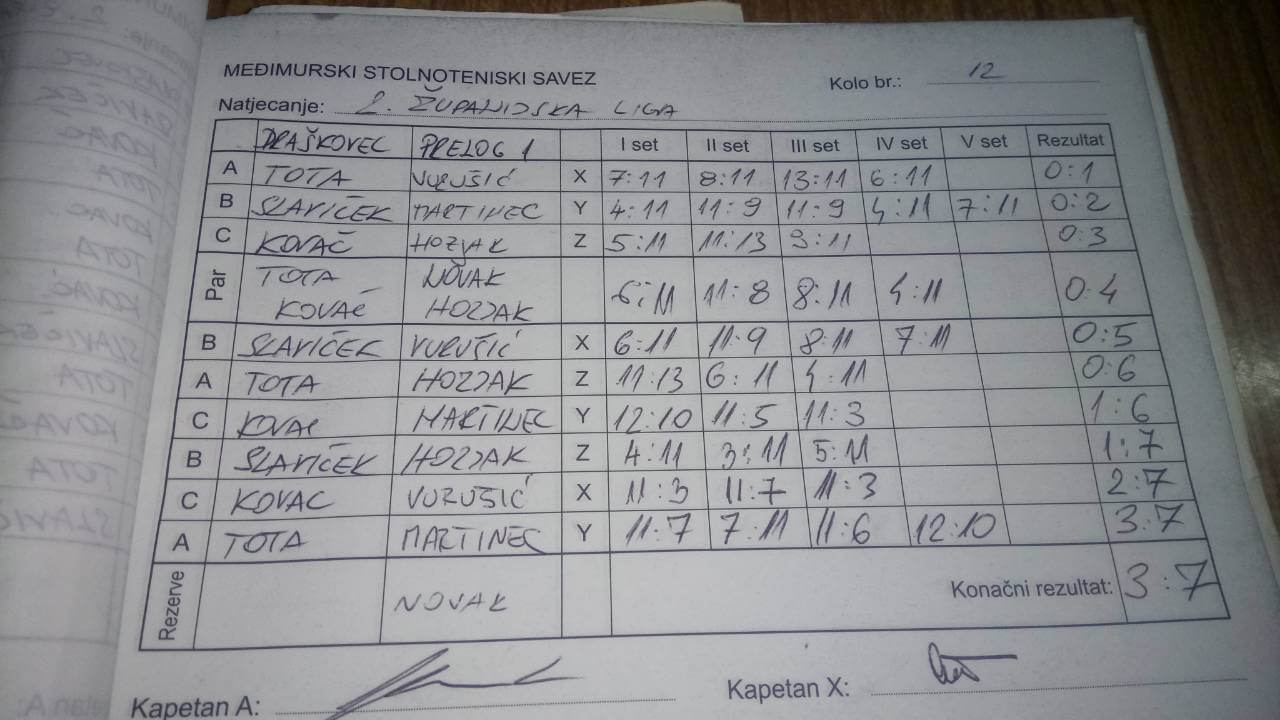 MEĐIMURSKI STOLNOTENISKI SAVEZ
Kolo br.: 12
Natjecanje: 2. ŽUPANIJSKA LIGA
DRAŠKOVEC PRELOG 1 I set II set III set IV set V set Rezultat
A TOTA VURUŠIĆ X 7:11 8:11 13:11 6:11 0:1
B SLAVIČEK MARTINEC Y 4:11 11:9 11:9 4:11 7:11 0:2
C KOVAČ HOZJAK Z 5:11 11:13 9:11 0:3
Par TOTA NOVAK
KOVAČ HOZJAK 6:11 11:8 8:11 4:11 0:4
B SLAVIČEK VURUŠIĆ X 6:11 11:9 8:11 7:11 0:5
A TOTA HOZJAK Z 11:13 6:11 4:11 0:6
C KOVAČ MARTINEC Y 12:10 11:5 11:3 1:6
B SLAVIČEK HOZJAK Z 4:11 3:11 5:11 1:7
C KOVAC VURUŠIĆ X 11:3 11:7 11:3 2:7
A TOTA MARTINEC Y 11:7 7:11 11:6 12:10 3:7
Rezerve NOVAK Konačni rezultat: 3:7
Kapetan A: Kapetan X: